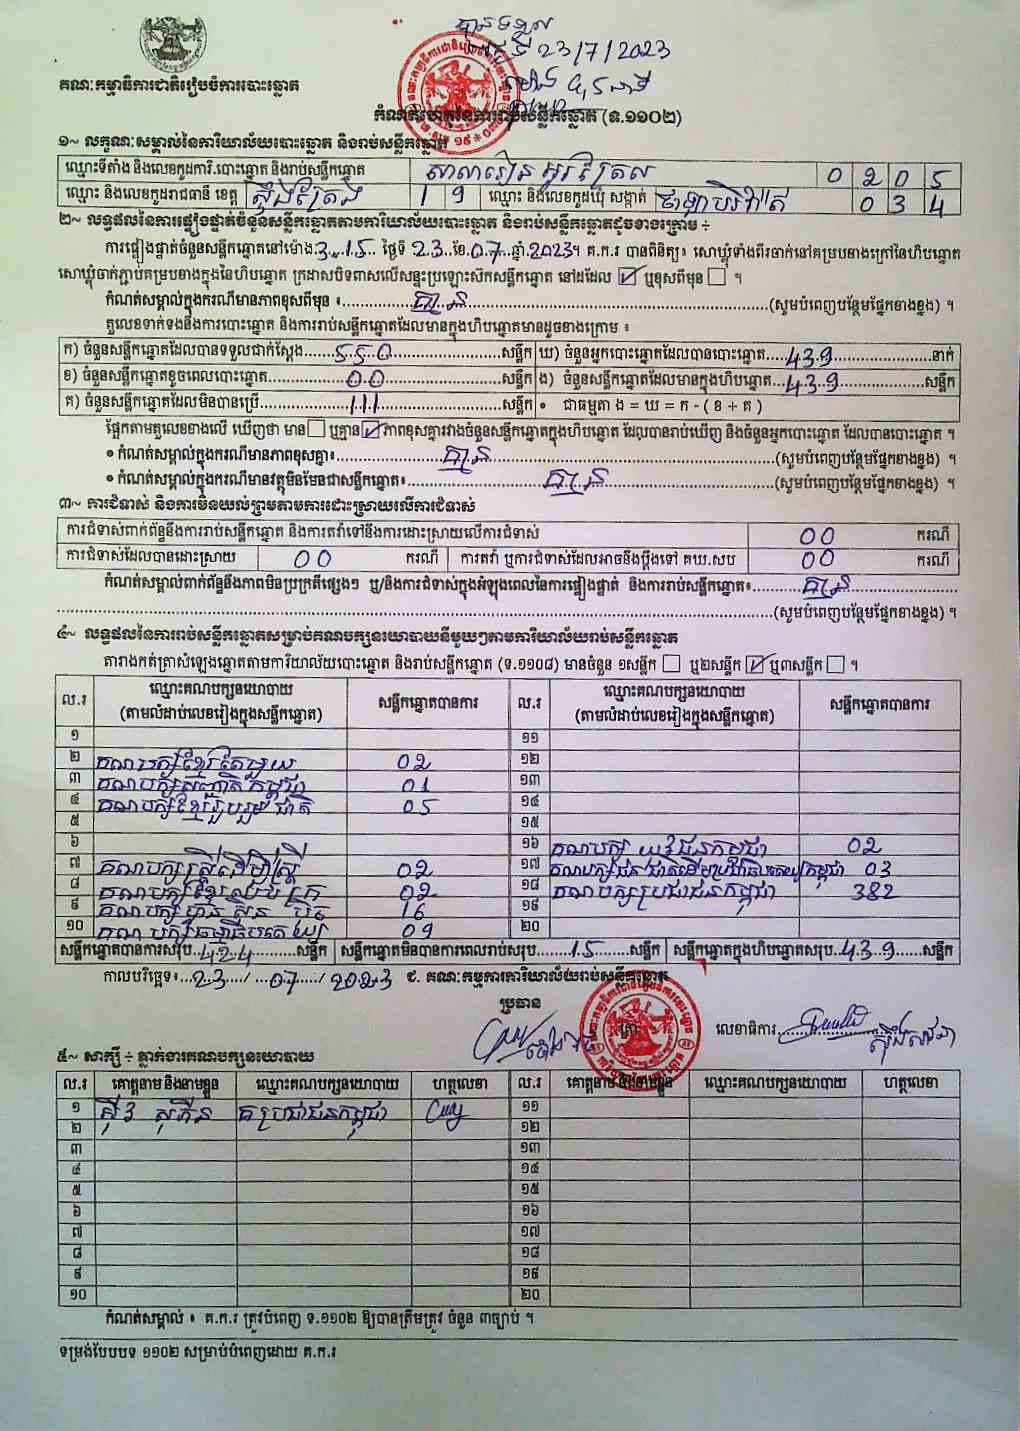 បានទទួល
ថ្ងៃទី 23/7/2023
គណៈកម្មាធិការជាតិរៀបចំការបោះឆ្នោត
កំណត់ហេតុនៃការរាប់សន្លឹកឆ្នោត (ទ.១១០២)
១~ លក្ខណៈសម្គាល់នៃការិយាល័យបោះឆ្នោត និងរាប់សន្លឹកឆ្នោត
ឈ្មោះទីតាំង និងលេខកូដការិ.បោះឆ្នោត និងរាប់សន្លឹកឆ្នោត សាលារៀន អូរត្រែល 0 2 0 5
ឈ្មោះ និងលេខកូដរាជធានី ខេត្ត ស្ទឹងត្រែង 1 9 ឈ្មោះ និងលេខកូដឃុំ សង្កាត់ ថាឡាបរិវ៉ាត់ 0 3 4
២~ លទ្ធផលនៃការផ្ទៀងផ្ទាត់ចំនួនសន្លឹកឆ្នោតតាមការិយាល័យបោះឆ្នោត និងរាប់សន្លឹកឆ្នោតដូចខាងក្រោម ÷
ការផ្ទៀងផ្ទាត់ចំនួនសន្លឹកឆ្នោតនៅម៉ោង 3:15 ថ្ងៃទី 23 ខែ 07 ឆ្នាំ 2023។ គ.ក.រ បានពិនិត្យ៖ សោឃ្លុំទាំងពីរចាក់នៅគម្របខាងក្រៅនៃហិបឆ្នោត
សោឃ្លុំចាក់ភ្ជាប់គម្របខាងក្នុងនៃហិបឆ្នោត ក្រដាសបិទពាសលើសន្ទះប្រឡោះស៊កសន្លឹកឆ្នោត នៅដដែល ☑ ឬខុសពីមុន ☐ ។
កំណត់សម្គាល់ក្នុងករណីមានភាពខុសពីមុន ៖ គ្មាន (សូមបំពេញបន្ថែមផ្នែកខាងខ្នង) ។
តួលេខទាក់ទងនឹងការបោះឆ្នោត និងការរាប់សន្លឹកឆ្នោតដែលមានក្នុងហិបឆ្នោតមានដូចខាងក្រោម ៖
ក) ចំនួនសន្លឹកឆ្នោតដែលបានទទួលជាក់ស្តែង 550 សន្លឹក ឃ) ចំនួនអ្នកបោះឆ្នោតដែលបានបោះឆ្នោត 439 នាក់
ខ) ចំនួនសន្លឹកឆ្នោតខូចពេលបោះឆ្នោត 00 សន្លឹក ង) ចំនួនសន្លឹកឆ្នោតដែលមានក្នុងហិបឆ្នោត 439 សន្លឹក
គ) ចំនួនសន្លឹកឆ្នោតដែលមិនបានប្រើ 111 សន្លឹក • ជាធម្មតា ង = ឃ = ក - ( ខ + គ )
ផ្អែកតាមតួលេខខាងលើ ឃើញថា មាន ☐ ឬគ្មាន ☑ ភាពខុសគ្នារវាងចំនួនសន្លឹកឆ្នោតក្នុងហិបឆ្នោត ដែលបានរាប់ឃើញ និងចំនួនអ្នកបោះឆ្នោត ដែលបានបោះឆ្នោត ។
• កំណត់សម្គាល់ក្នុងករណីមានភាពខុសគ្នា៖ គ្មាន (សូមបំពេញបន្ថែមផ្នែកខាងខ្នង) ។
• កំណត់សម្គាល់ក្នុងករណីមានវត្ថុមិនមែនជាសន្លឹកឆ្នោត៖ គ្មាន (សូមបំពេញបន្ថែមផ្នែកខាងខ្នង) ។
៣~ ការជំទាស់ និងការមិនយល់ព្រមតាមការដោះស្រាយលើការជំទាស់
ការជំទាស់ពាក់ព័ន្ធនឹងការរាប់សន្លឹកឆ្នោត និងការតវ៉ាទៅនឹងការដោះស្រាយលើការជំទាស់ 00 ករណី
ការជំទាស់ដែលបានដោះស្រាយ 00 ករណី ការតវ៉ា ឬការជំទាស់ដែលអាចនឹងប្តឹងទៅ គឃ.សប 00 ករណី
កំណត់សម្គាល់ពាក់ព័ន្ធនឹងភាពមិនប្រក្រតីផ្សេងៗ ឬ/និងការជំទាស់ក្នុងអំឡុងពេលនៃការផ្ទៀងផ្ទាត់ និងការរាប់សន្លឹកឆ្នោត៖ គ្មាន
(សូមបំពេញបន្ថែមផ្នែកខាងខ្នង) ។
៤~ លទ្ធផលនៃការរាប់សន្លឹកឆ្នោតសម្រាប់គណបក្សនយោបាយនីមួយៗតាមការិយាល័យរាប់សន្លឹកឆ្នោត
តារាងកត់ត្រាសំឡេងឆ្នោតតាមការិយាល័យបោះឆ្នោត និងរាប់សន្លឹកឆ្នោត (ទ.១១០៨) មានចំនួន ១សន្លឹក ☐ ឬ២សន្លឹក ☑ ឬ៣សន្លឹក ☐ ។
ល.រ ឈ្មោះគណបក្សនយោបាយ (តាមលំដាប់លេខរៀងក្នុងសន្លឹកឆ្នោត) សន្លឹកឆ្នោតបានការ ល.រ ឈ្មោះគណបក្សនយោបាយ (តាមលំដាប់លេខរៀងក្នុងសន្លឹកឆ្នោត) សន្លឹកឆ្នោតបានការ
១ ១១
២ គណបក្សខ្មែរតែមួយ 02 ១២
៣ គណបក្សសញ្ជាតិកម្ពុជា 01 ១៣
៤ គណបក្សខ្មែររួបរួមជាតិ 05 ១៤
៥ ១៥
៦ ១៦ គណបក្ស យុវជនកម្ពុជា 02
៧ គណបក្សស្ត្រីដើម្បីស្ត្រី 02 ១៧ គណបក្សជនជាតិដើមប្រជាធិបតេយ្យកម្ពុជា 03
៨ គណបក្សខ្មែរឈប់ក្រ 02 ១៨ គណបក្សប្រជាជនកម្ពុជា 382
៩ គណបក្សហ្វ៊ុនស៊ិនប៉ិច 16 ១៩
១០ គណបក្សធម្មាធិបតេយ្យ 09 ២០
សន្លឹកឆ្នោតបានការសរុប 424 សន្លឹក សន្លឹកឆ្នោតមិនបានការពេលរាប់សរុប 15 សន្លឹក សន្លឹកឆ្នោតក្នុងហិបឆ្នោតសរុប 439 សន្លឹក
កាលបរិច្ឆេទ៖ 23 / 07 / 2023 ជ. គណៈកម្មការការិយាល័យរាប់សន្លឹកឆ្នោត
ប្រធាន លេខាធិការ
៥~ សាក្សី ÷ ភ្នាក់ងារគណបក្សនយោបាយ
ល.រ គោត្តនាម និងនាមខ្លួន ឈ្មោះគណបក្សនយោបាយ ហត្ថលេខា ល.រ គោត្តនាម និងនាមខ្លួន ឈ្មោះគណបក្សនយោបាយ ហត្ថលេខា
១ ស៊ីវ សុភីន គ ប្រជាជនកម្ពុជា ១១
២ ១២
៣ ១៣
៤ ១៤
៥ ១៥
៦ ១៦
៧ ១៧
៨ ១៨
៩ ១៩
១០ ២០
កំណត់សម្គាល់ ៖ គ.ក.រ ត្រូវបំពេញ ទ.១១០២ ឱ្យបានត្រឹមត្រូវ ចំនួន ៣ច្បាប់ ។
ទម្រង់បែបបទ ១១០២ សម្រាប់បំពេញដោយ គ.ក.រ